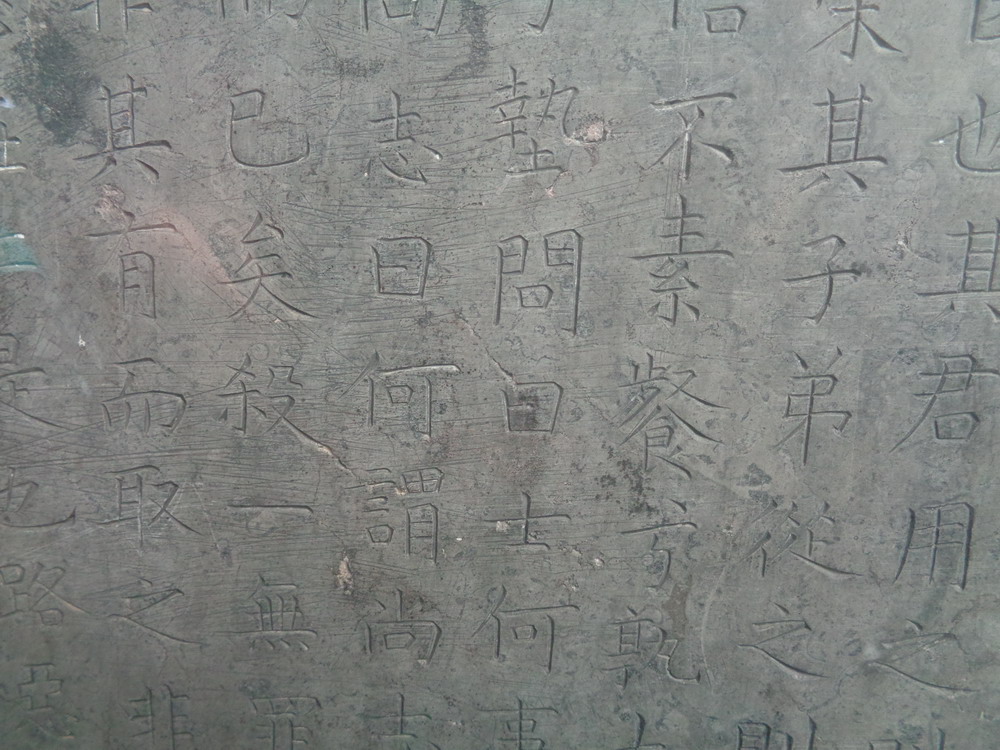 也其君用之
榮其子弟從之則
信不素餐兮孰大
子墊問曰士何事
尚志曰何謂尚志
而已矣殺一無罪
非其有而取之非
是也路惡